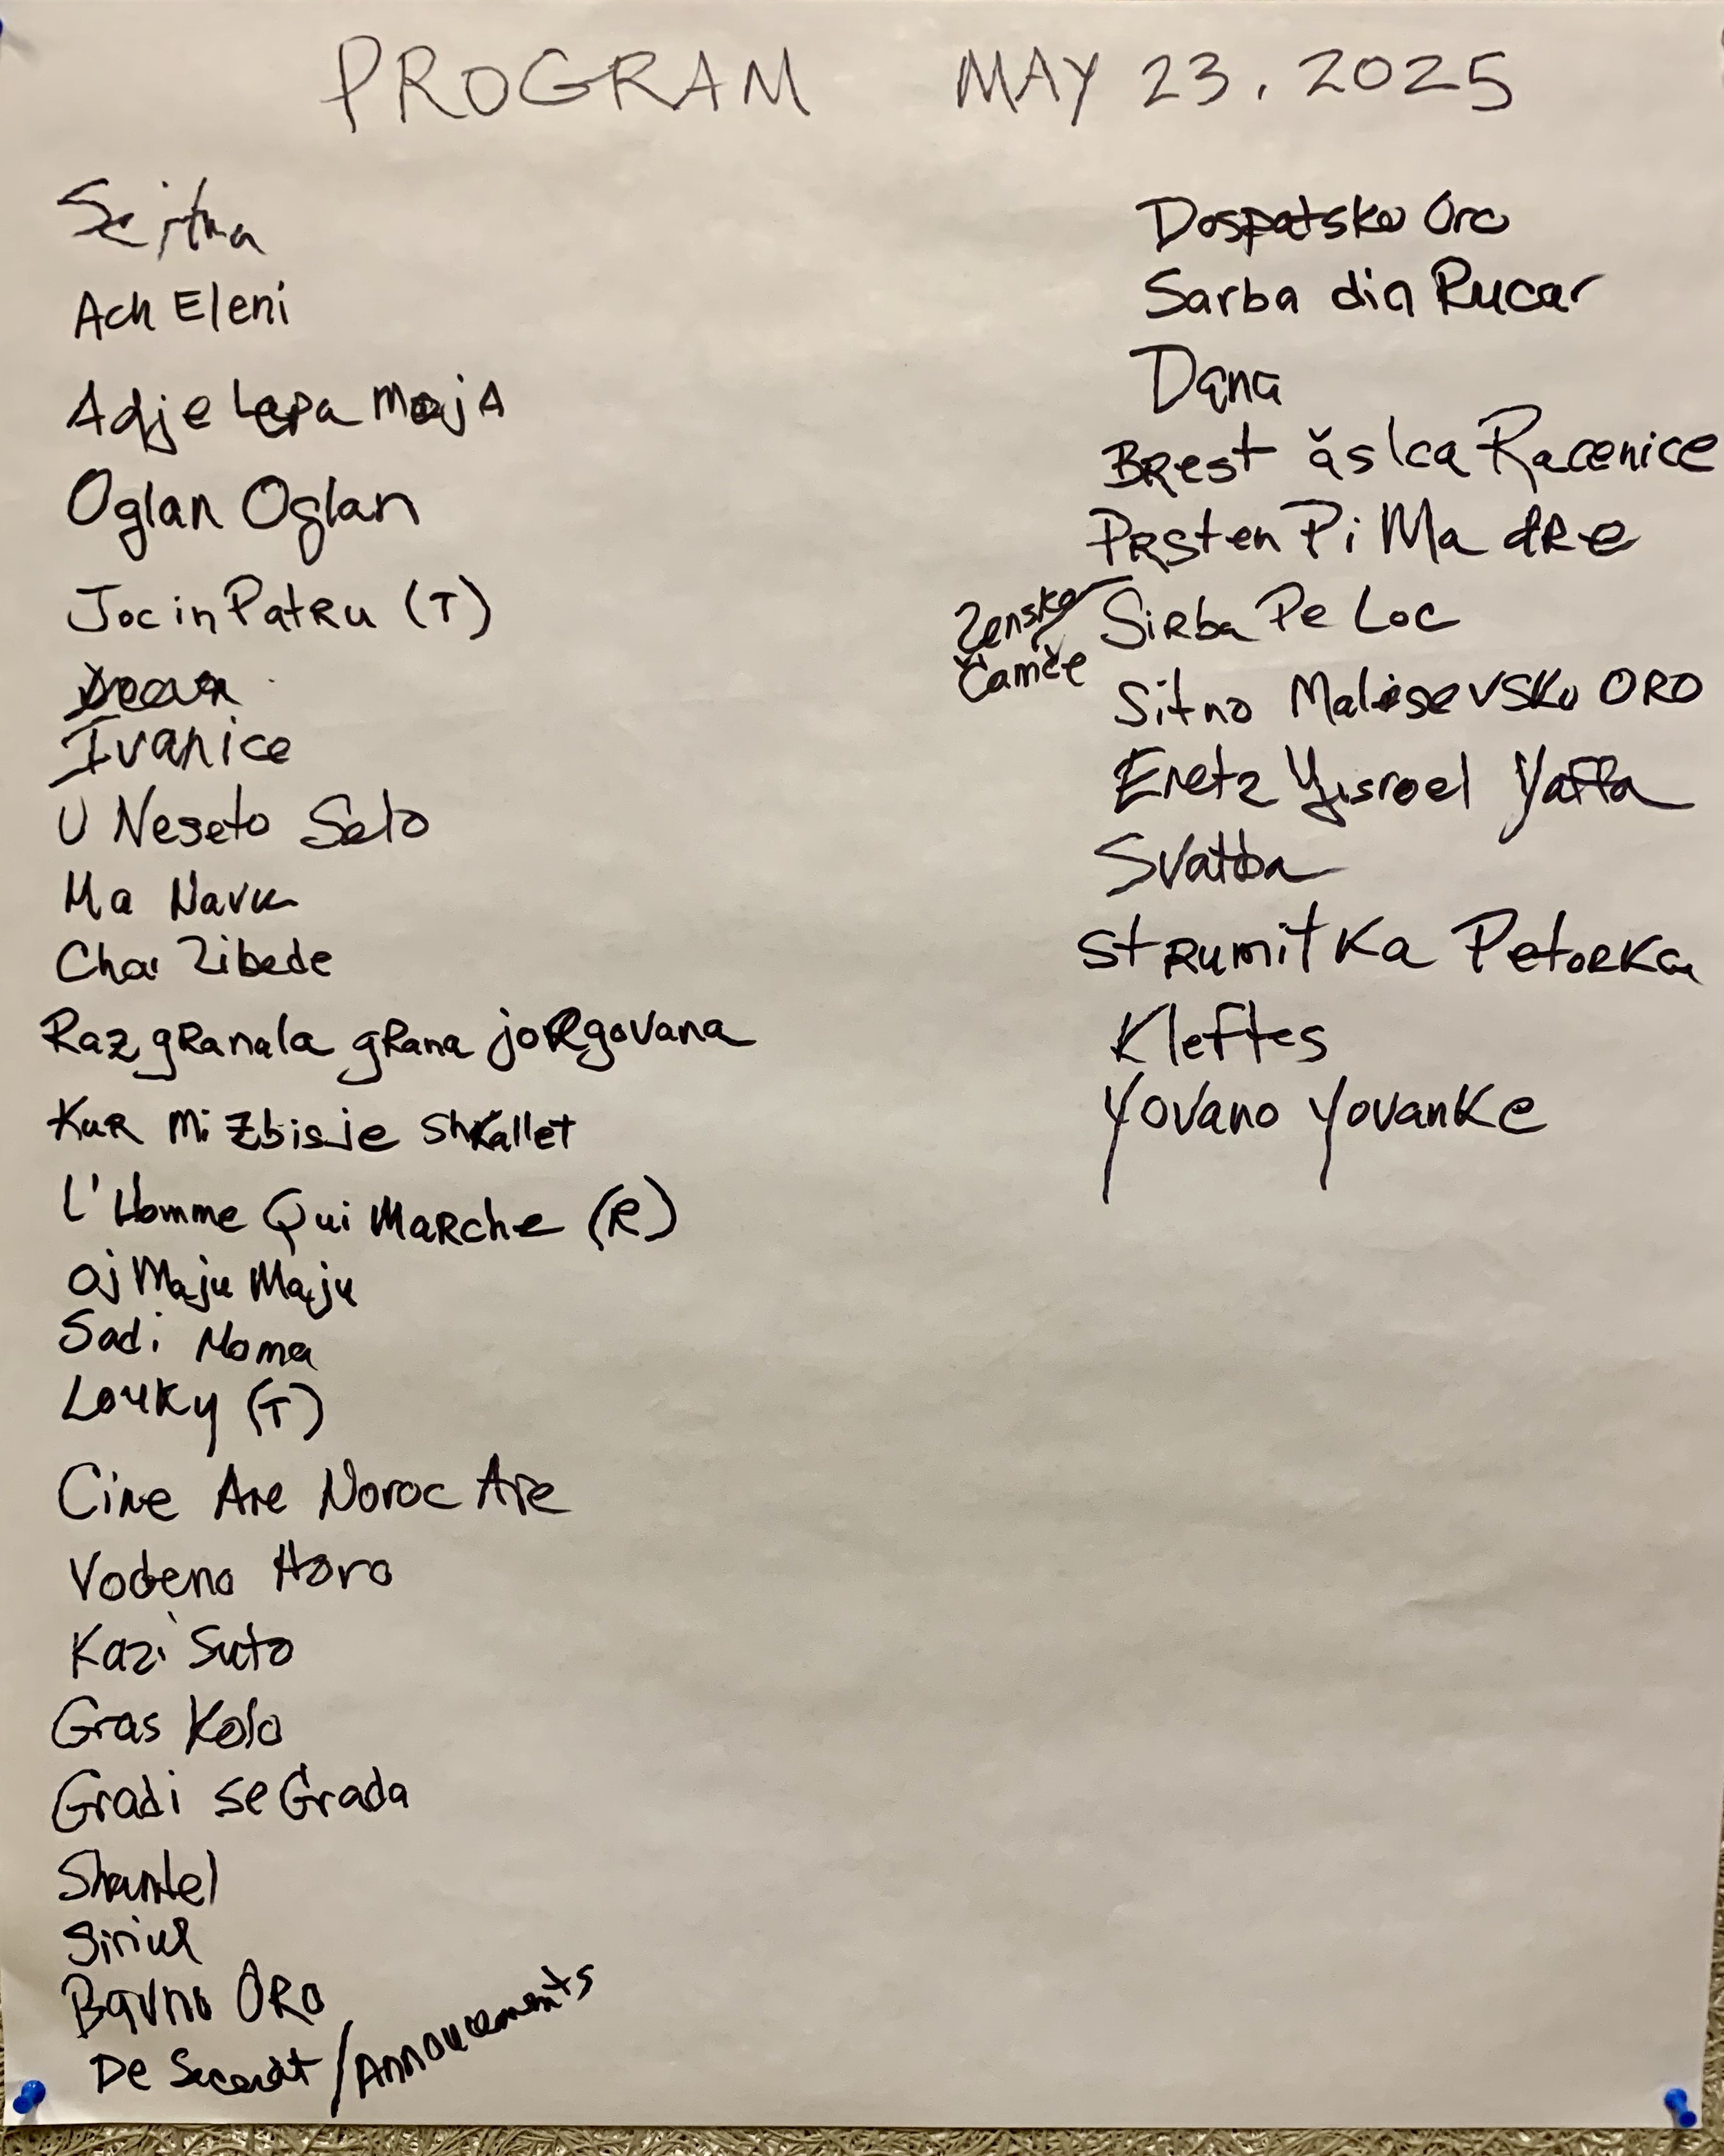 PROGRAM MAY 23, 2025
Ach Eleni
Adje Lepa Maja
Oglan Oglan
Joc in Patru (T)
Ivanice
U Neseto Selo
Ma Navu
Chai Zibede
Razgranala grana jorgovana
Kur Mi Zbisje Shkallet
L'Homme Qui Marche (R)
Oj Maju Maju
Sadi Moma
Louky (T)
Cine Are Noroc Are
Vodeno Horo
Kazi Suto
Gras Kolo
Gradi se Grada
Shantel
Siriul
Bavno Oro
De Secerat / Annoucements
Dospatsko Oro
Sarba din Rucar
Dana
Brest ăslca Racenice
Prsten Pi Ma dre
Zensko Čamče
Sirba Pe Loc
Sitno Malesevsko ORO
Eretz Yisroel Yaffa
Svatba
Strumitka Petorka
Kleftes
Yovano Yovanke